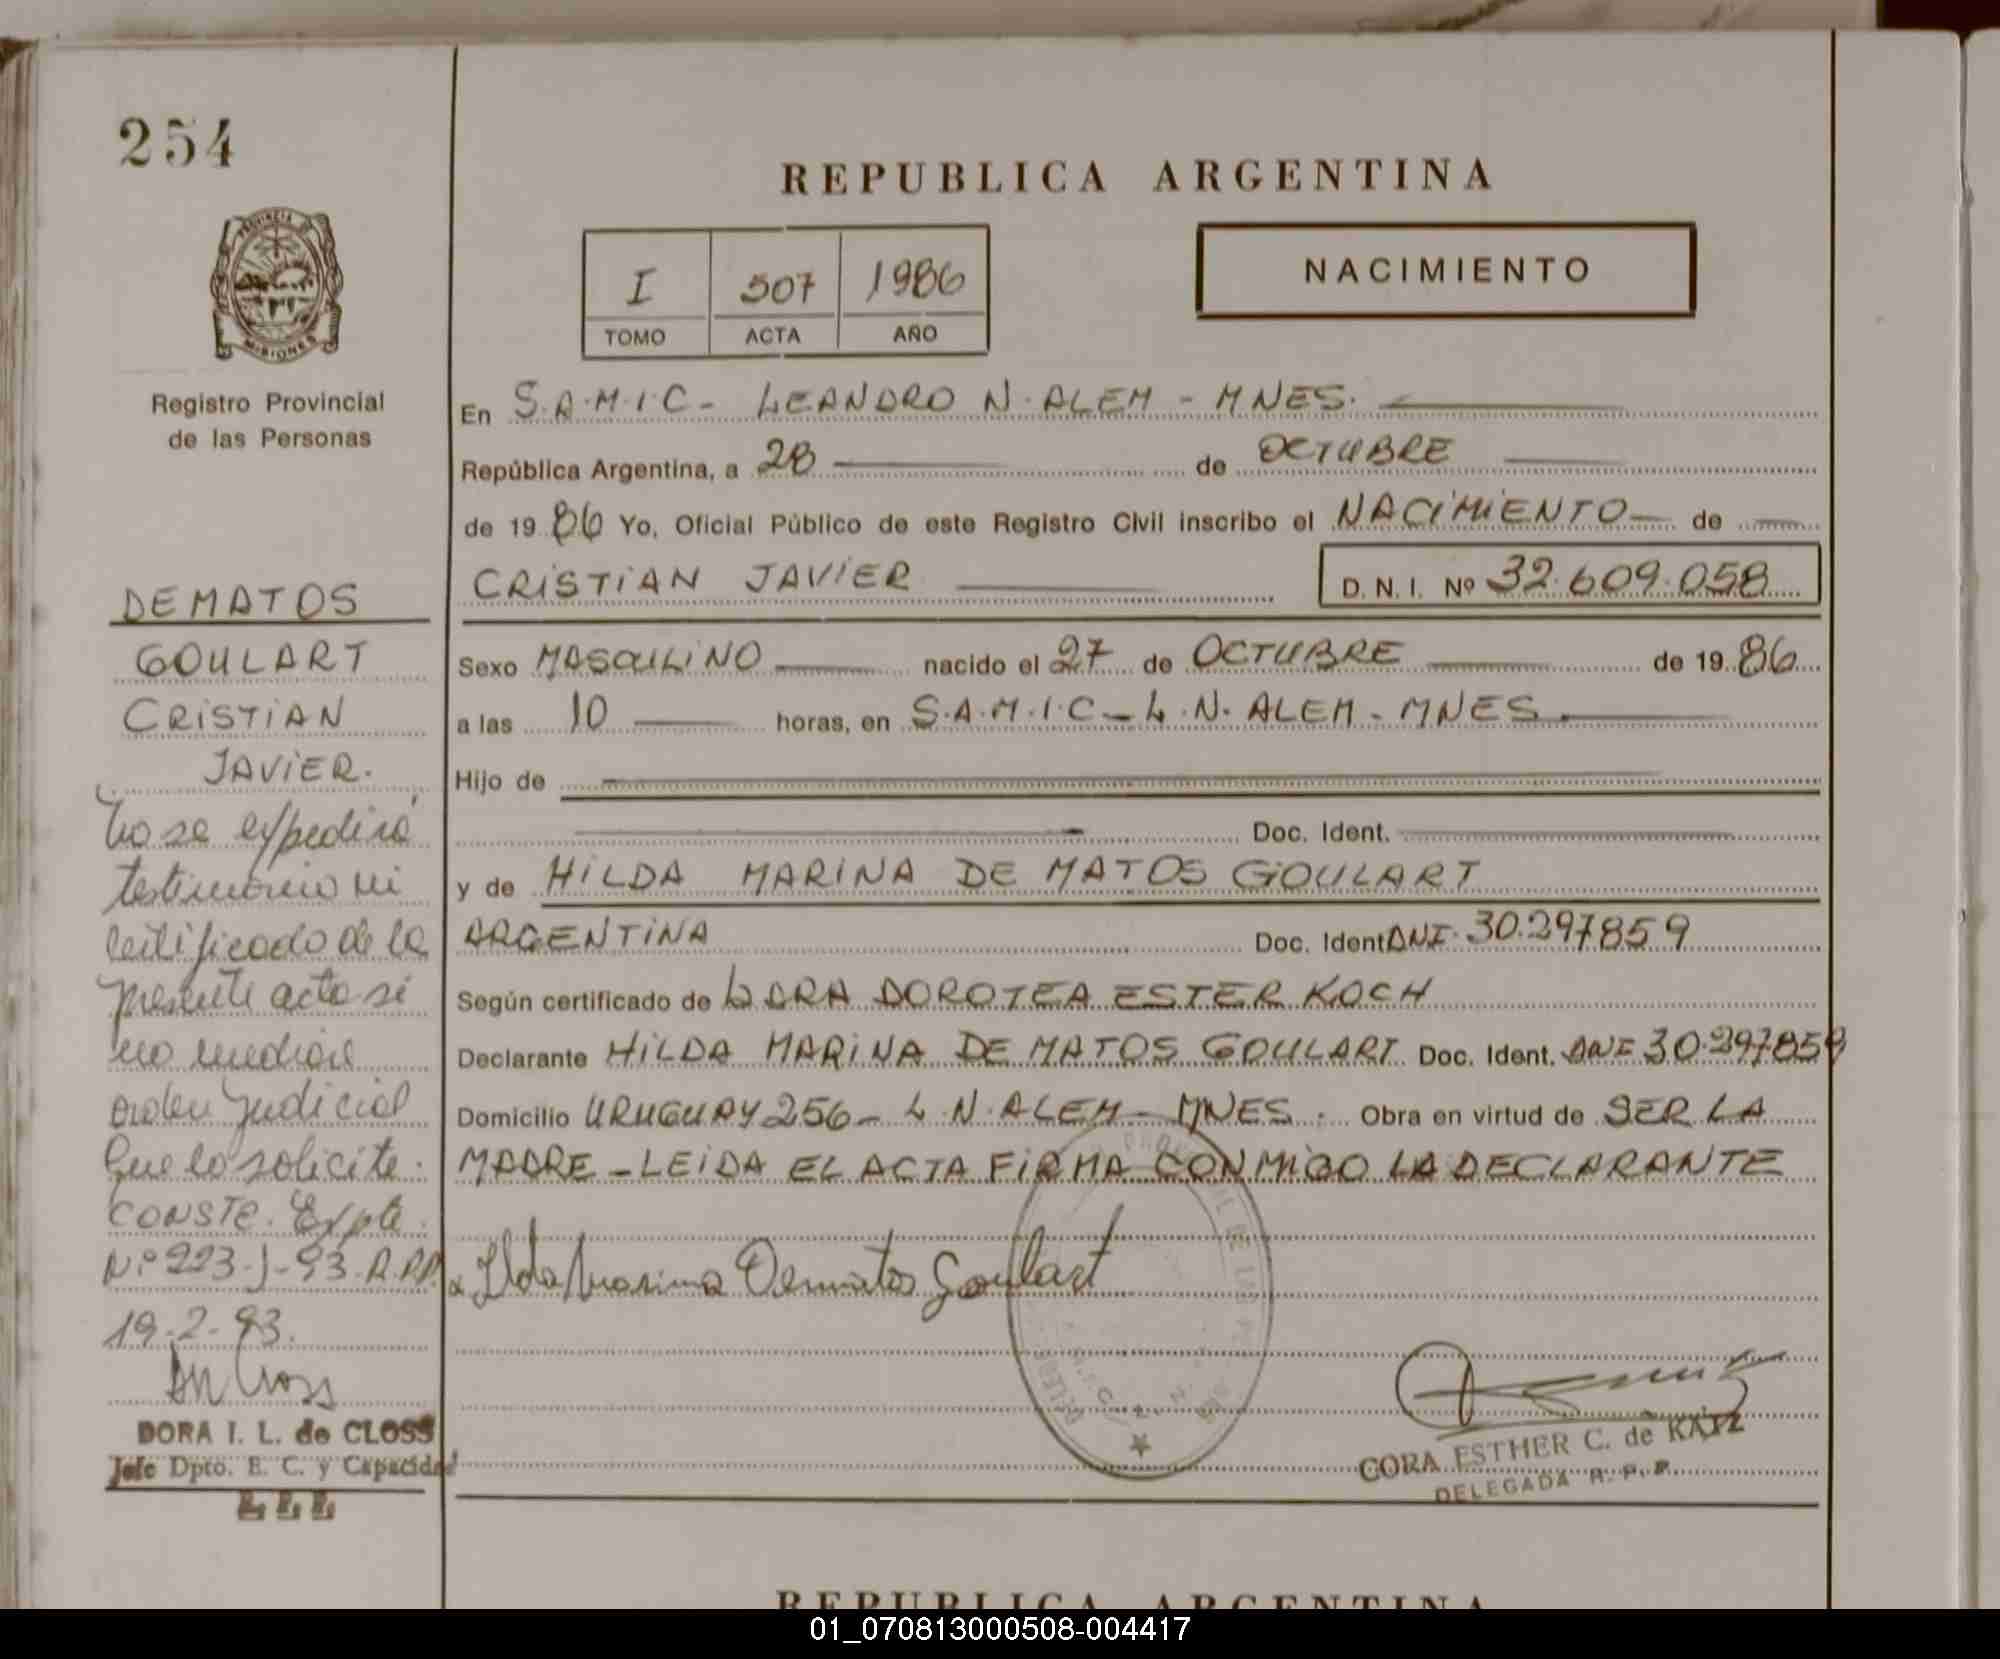 254
REPUBLICA ARGENTINA
PROVINCIA
MISIONES
Registro Provincial
de las Personas
I 507 1986
TOMO ACTA AÑO
NACIMIENTO
En S.A.M.I.C - LEANDRO N. ALEM - MNES.
República Argentina, a 28 de OCTUBRE
de 19 86 Yo, Oficial Público de este Registro Civil inscribo el NACIMIENTO de
CRISTIAN JAVIER D. N. I. Nº 32.609.058
Sexo MASCULINO nacido el 27 de OCTUBRE de 19 86
a las 10 horas, en S.A.M.I.C - L.N. ALEM - MNES.
Hijo de
Doc. Ident.
y de HILDA MARINA DE MATOS GOULART
ARGENTINA Doc. Ident DNI. 30.297859
Según certificado de LARA DOROTEA ESTER KOCH
Declarante HILDA MARINA DE MATOS GOULART Doc. Ident. DNI 30.297859
Domicilio URUGUAY 256 - L.N. ALEM - MNES. Obra en virtud de SER LA
MADRE - LEIDA EL ACTA FIRMA CONMIGO LA DECLARANTE
Ilda Marina Dematos Goulart
CORA ESTHER C. de KATZ
DELEGADA R. P. P.
DEMATOS
GOULART
CRISTIAN
JAVIER.
No se expedirá
testimonio ni
certificado de la
presente acta si
no mediare
orden judicial
que lo solicite.
CONSTE. Expte.
Nº 223-J-93-R.P.P.
19-2-93.
DORA I. L. de CLOSS
Jefe Dpto. E. C. y Capacidad
REPUBLICA ARGENTINA
01_070813000508-004417